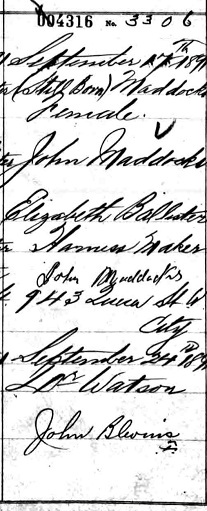 004316 No. 3306
September 17th 189
(Still Born) Maddocks
Female.
John Maddocks
Elizabeth Ballister
Harness Maker
John Maddocks
943 Queen St W
City
September 24th 189
Dr Watson
John Blevins